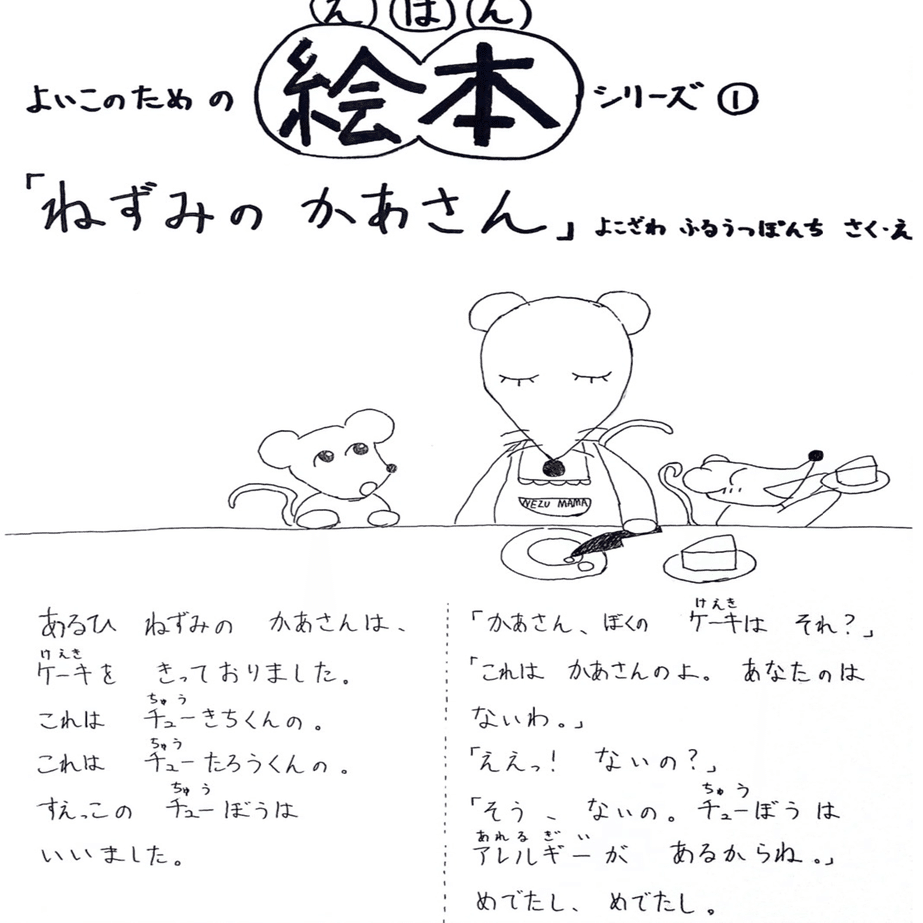 えほん
よいこのための 絵本 シリーズ ①
「ねずみの かあさん」 よこざわ ふるうっぽんち さく・え
NEZU MAMA
あるひ ねずみの かあさんは、
けえき
ケーキを きっておりました。
ちゅう
これは チューきちくんの。
ちゅう
これは チューたろうくんの。
ちゅう
すえっこの チューぼうは
いいました。
けえき
「かあさん、ぼくの ケーキは それ?」
「これは かあさんのよ。 あなたのは
ないわ。」
「ええっ! ないの?」
ちゅう
「そう、ないの。チューぼうは
あれるぎい
アレルギーが あるからね。」
めでたし、めでたし。